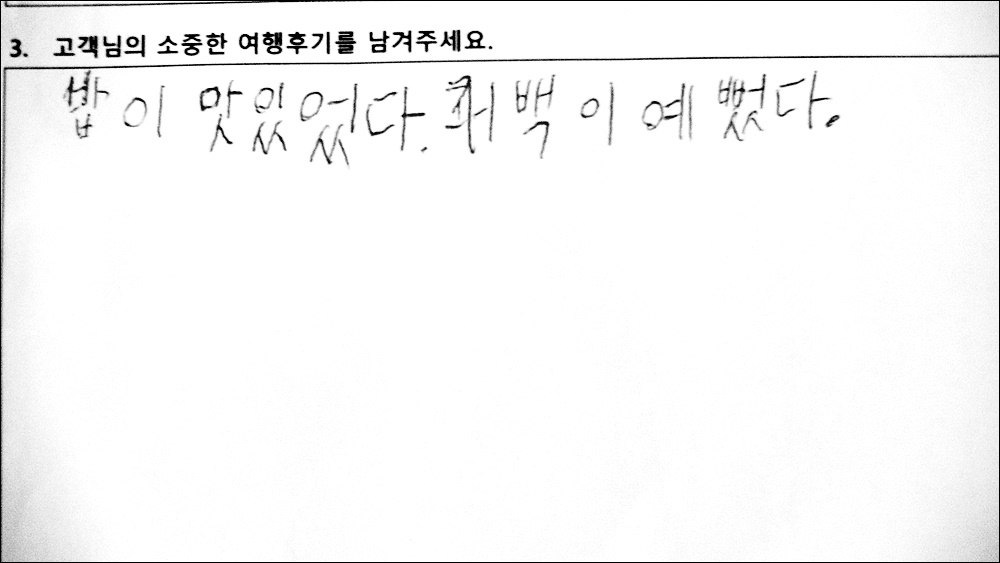 3. 고객님의 소중한 여행후기를 남겨주세요.
밥이 맛있었다. 이 예뻤다.